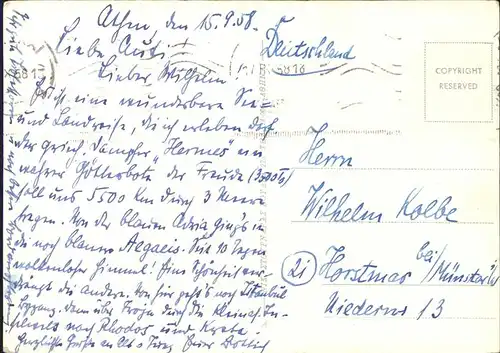 Athen, den 15.9.58.
Liebe Austi
Lieber Wilhelm
Es ist eine wunderbare See-
und Landreise, die ich erleben darf
der griech. Dampfer "Hermes" ein
wahrer Götterbote der Freude (3000 To)
soll uns 5500 km durch 3 Meere
tragen. Von der blauen Adria ging's in
die noch blauere Aegaeis. Seit 10 Tagen
wolkenloser Himmel! Eine Schönheit ver-
drängt die andere. Von hier geht's nach Istanbul
dann über Troja durch die Kleinas.
nach Rhodos und Kreta!
Herzliche Grüße an Alt u Jung Euer
Deutschland
COPYRIGHT
RESERVED
Herrn
Wilhelm Kolbe
21 Horstmar bei/Münster i/
Niedern 13